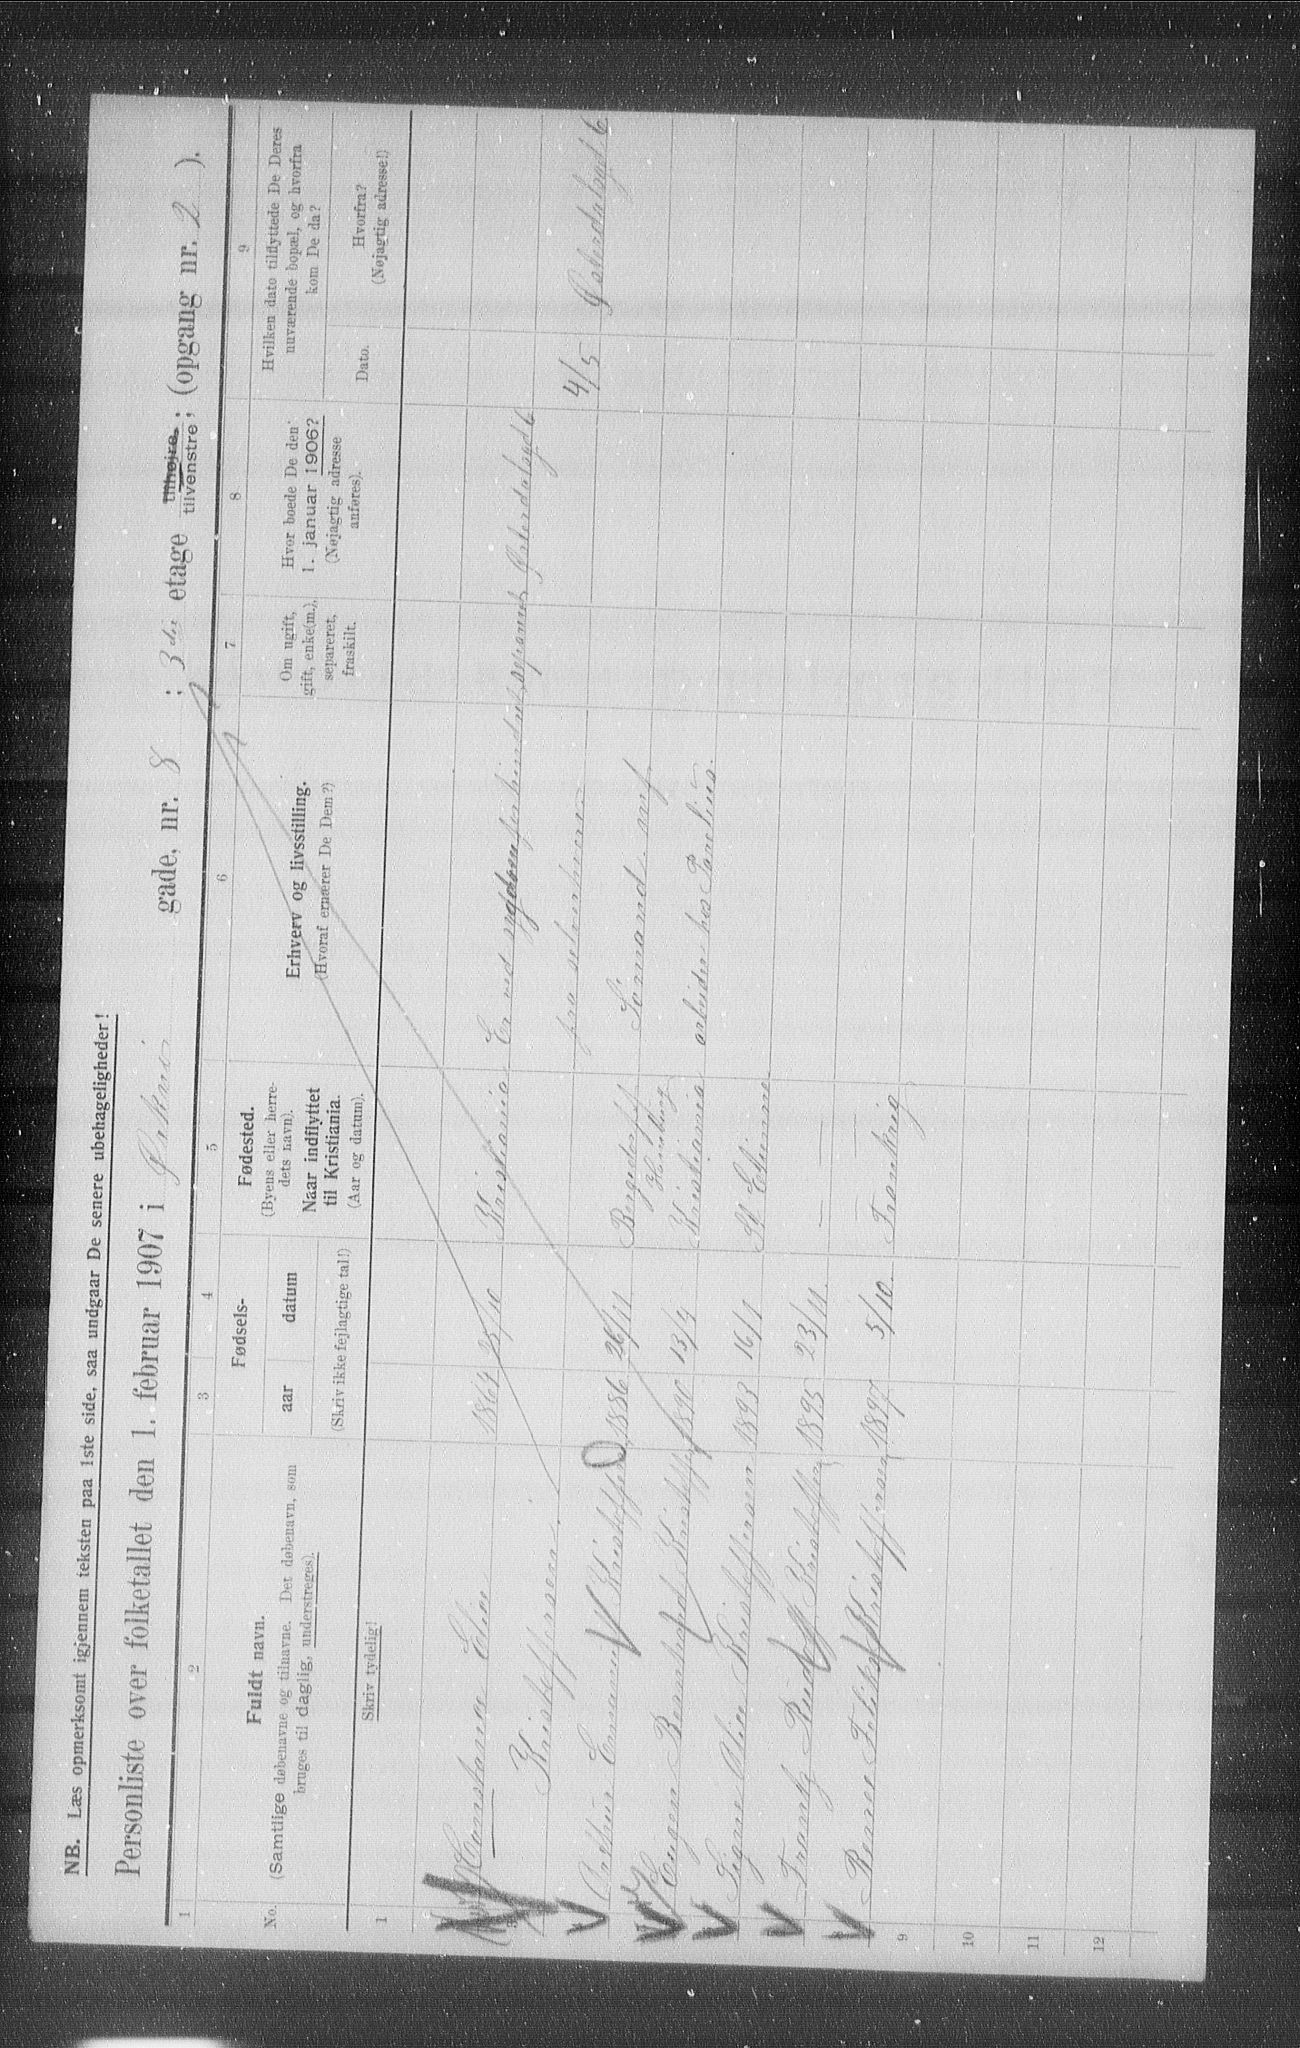 NB. Læs opmerksomt igjennem teksten paa 1ste side, saa undgaar De senere ubehageligheder!
Personliste over folketallet den 1. februar 1907 i gade, nr. 8 ; 3die etage tilhøjre, tilvenstre; (opgang nr. 2 ).
1 2 3 4 5 6 7 8 9
No.
Fuldt navn.
(Samtlige døbenavne og tilnavne. Det døbenavn, som
bruges til daglig, understreges).
Skriv tydelig!
Fødsels-
aar datum
(Skriv ikke fejlagtige tal!)
Fødested.
(Byens eller herre-
dets navn).
Naar indflyttet
til Kristiania.
(Aar og datum).
Erhverv og livsstilling.
(Hvoraf ernærer De Dem?)
Om ugift,
gift, enke(m.),
separeret,
fraskilt.
Hvor boede De den
1. januar 1906?
(Nøjagtig adresse
anføres).
Hvilken dato tilflyttede De Deres
nuværende bopæl, og hvorfra
kom De da?
Dato.
Hvorfra?
(Nøjagtig adresse!)
1
Constance Elise 25/10 Kristiania Er ved sygdom forhindret separeret Østerdalsgd 6
Kristoffersen. fra selverhverv 4/5 Østerdalsgd 6
Arthur Kristoffersen 1886 26/11 Hamburg Sömand
Eugen Bernhard Kristoffersen 1890 13/9 Kristiania arbeider hos
Signe Kristoffersen 1893 16/1 St Etienne
Frantz Rudolf Kristoffersen 1895 23/11. — —
Kristoffersen 1897 5/10. Frankrig
9
10
11
12